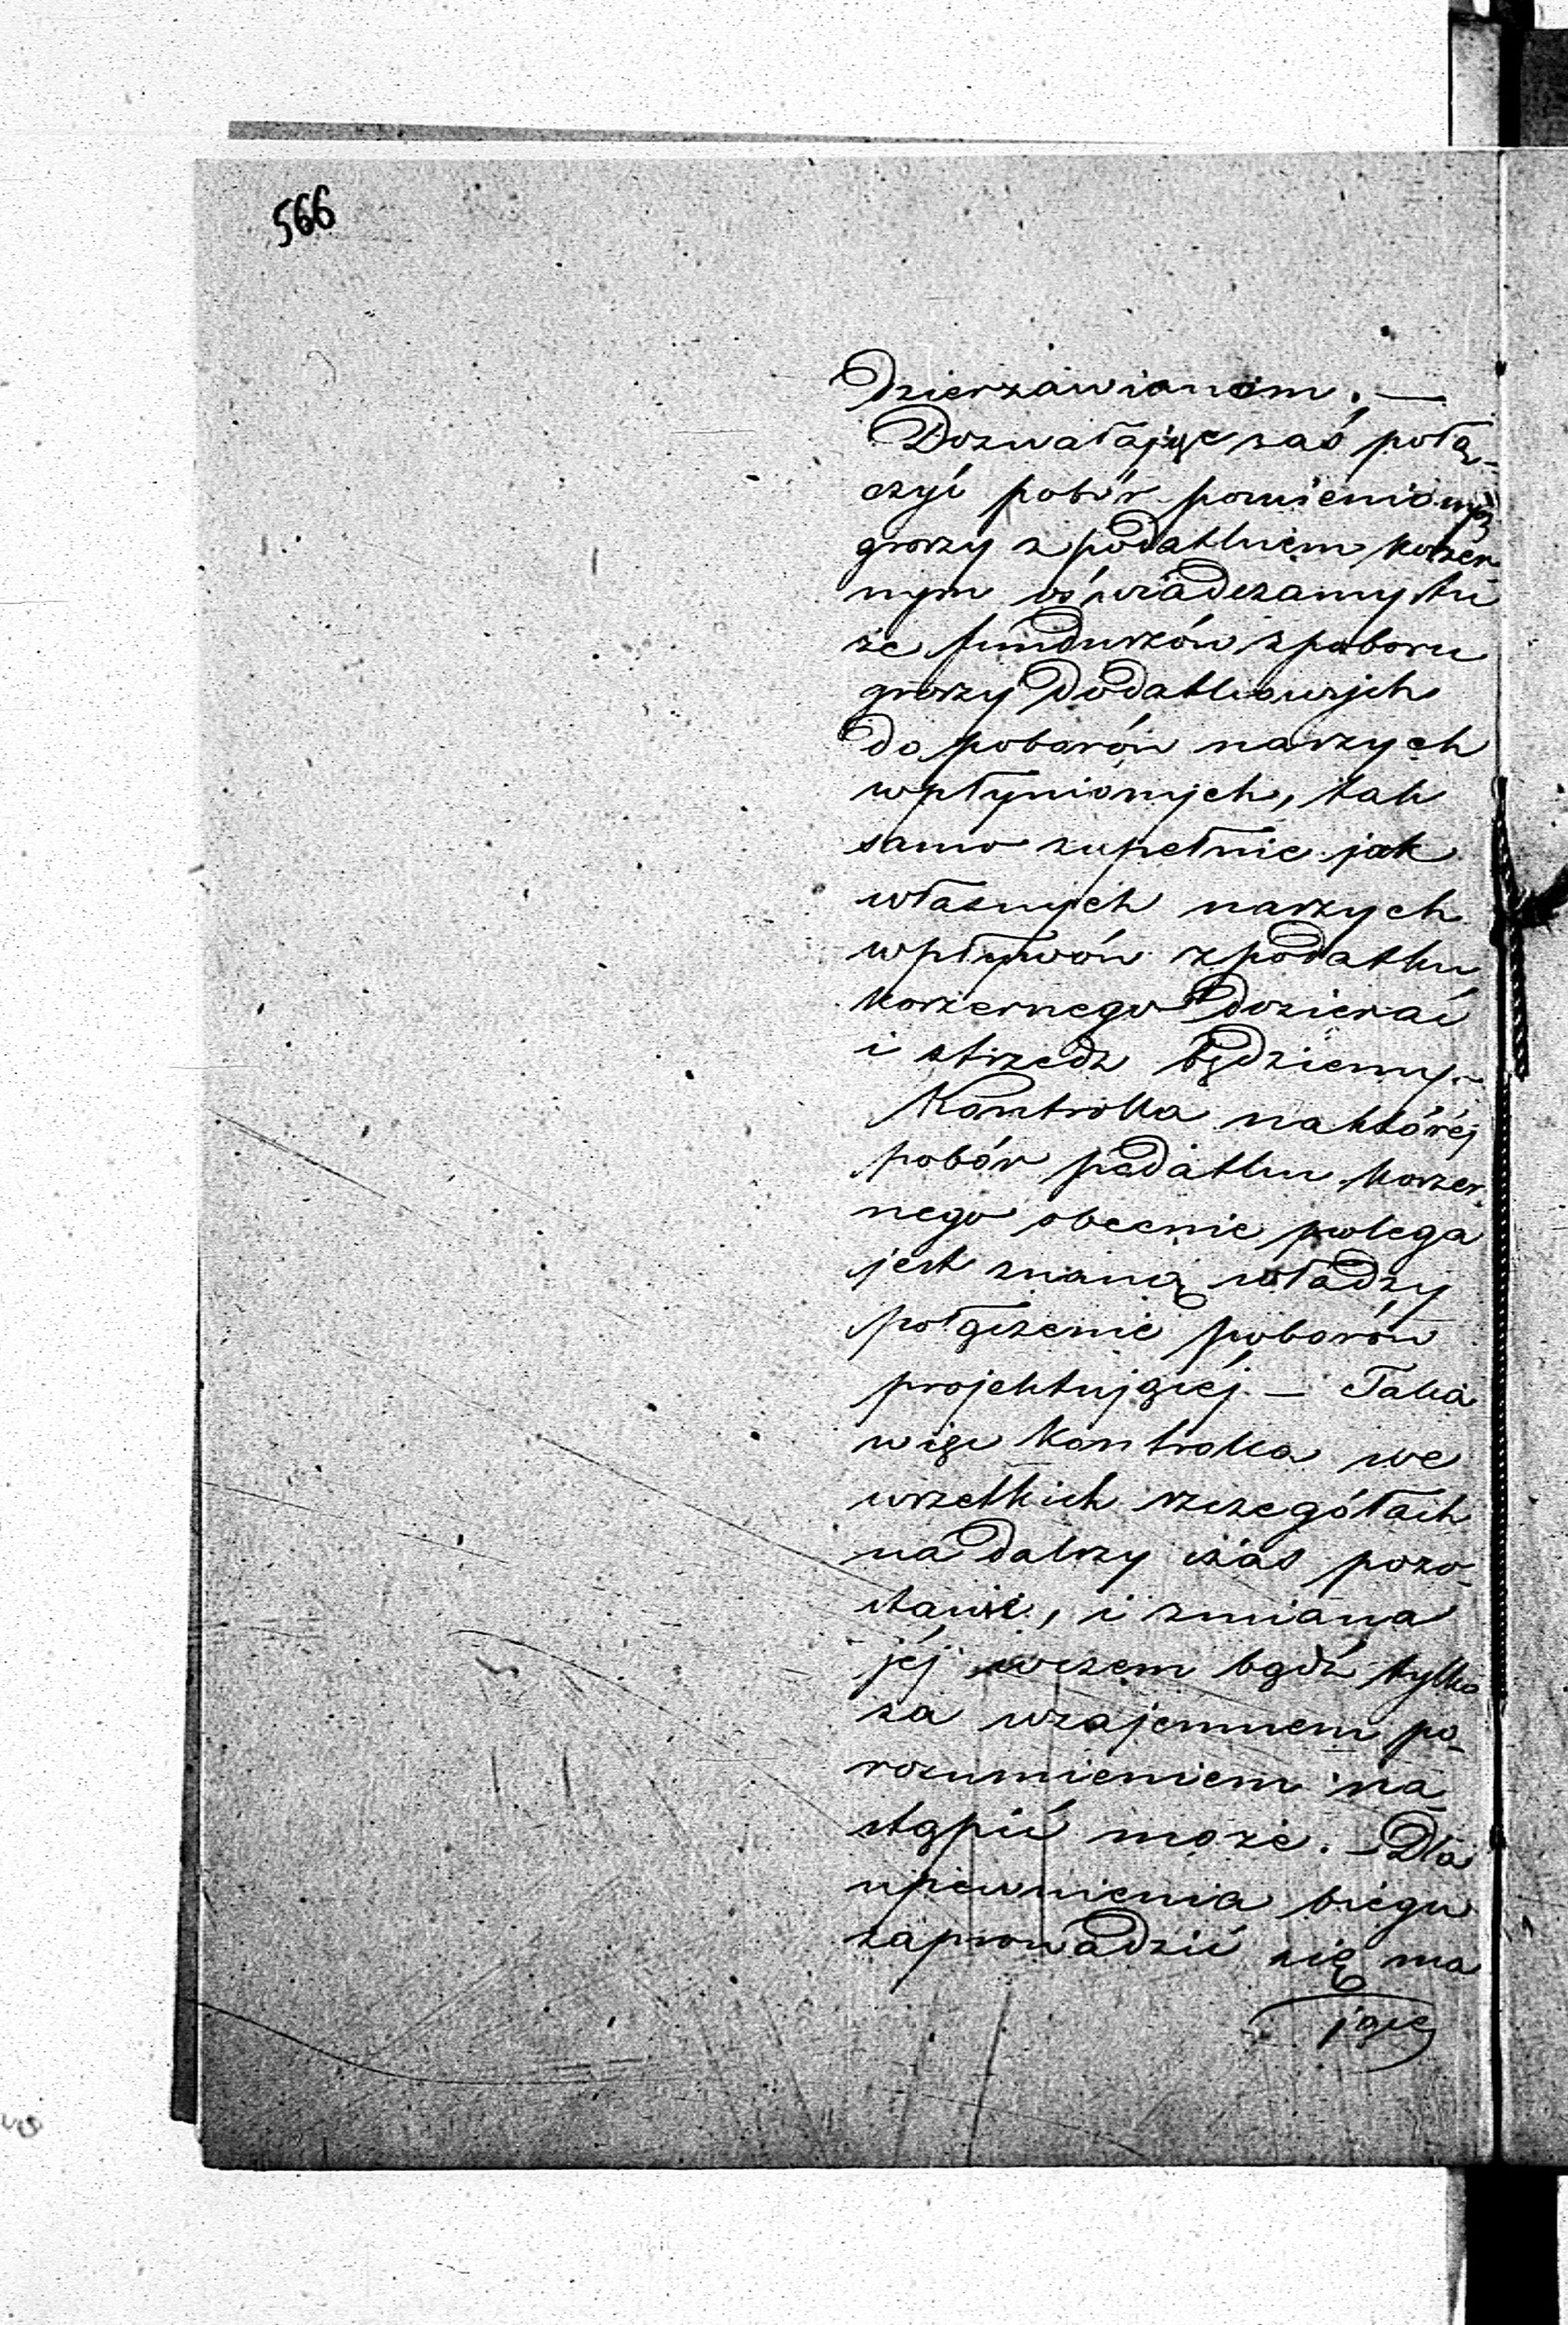 566
Dzierzawianom. —
Dozwalając zaś połą-
czyć pobór pomienionych
groszy z podatkiem koszer-
nym oświadczamy tu
że funduszów z poboru
groszy Dodatkowych
do poborów naszych
wpłynionych, tak
samo zupełnie jak
własnych naszych
wpływów z podatku
koszernego dozierać
i strzedz będziemy. —
Kontrolla na któréj
pobór podatku koszer-
nego obecnie polega
jest znaną władzy
połączenie poborów
projektującéj — Taka
więc kontrolla we
wszelkich szczegółach
na dalszy czas pozo-
stawić, i zmiana
jéj w czem bądź tylko
za wzajemnem po-
rozumieniem na-
stąpić może. — Dla
upewnienia biegu
zaprowadzić się ma
jące